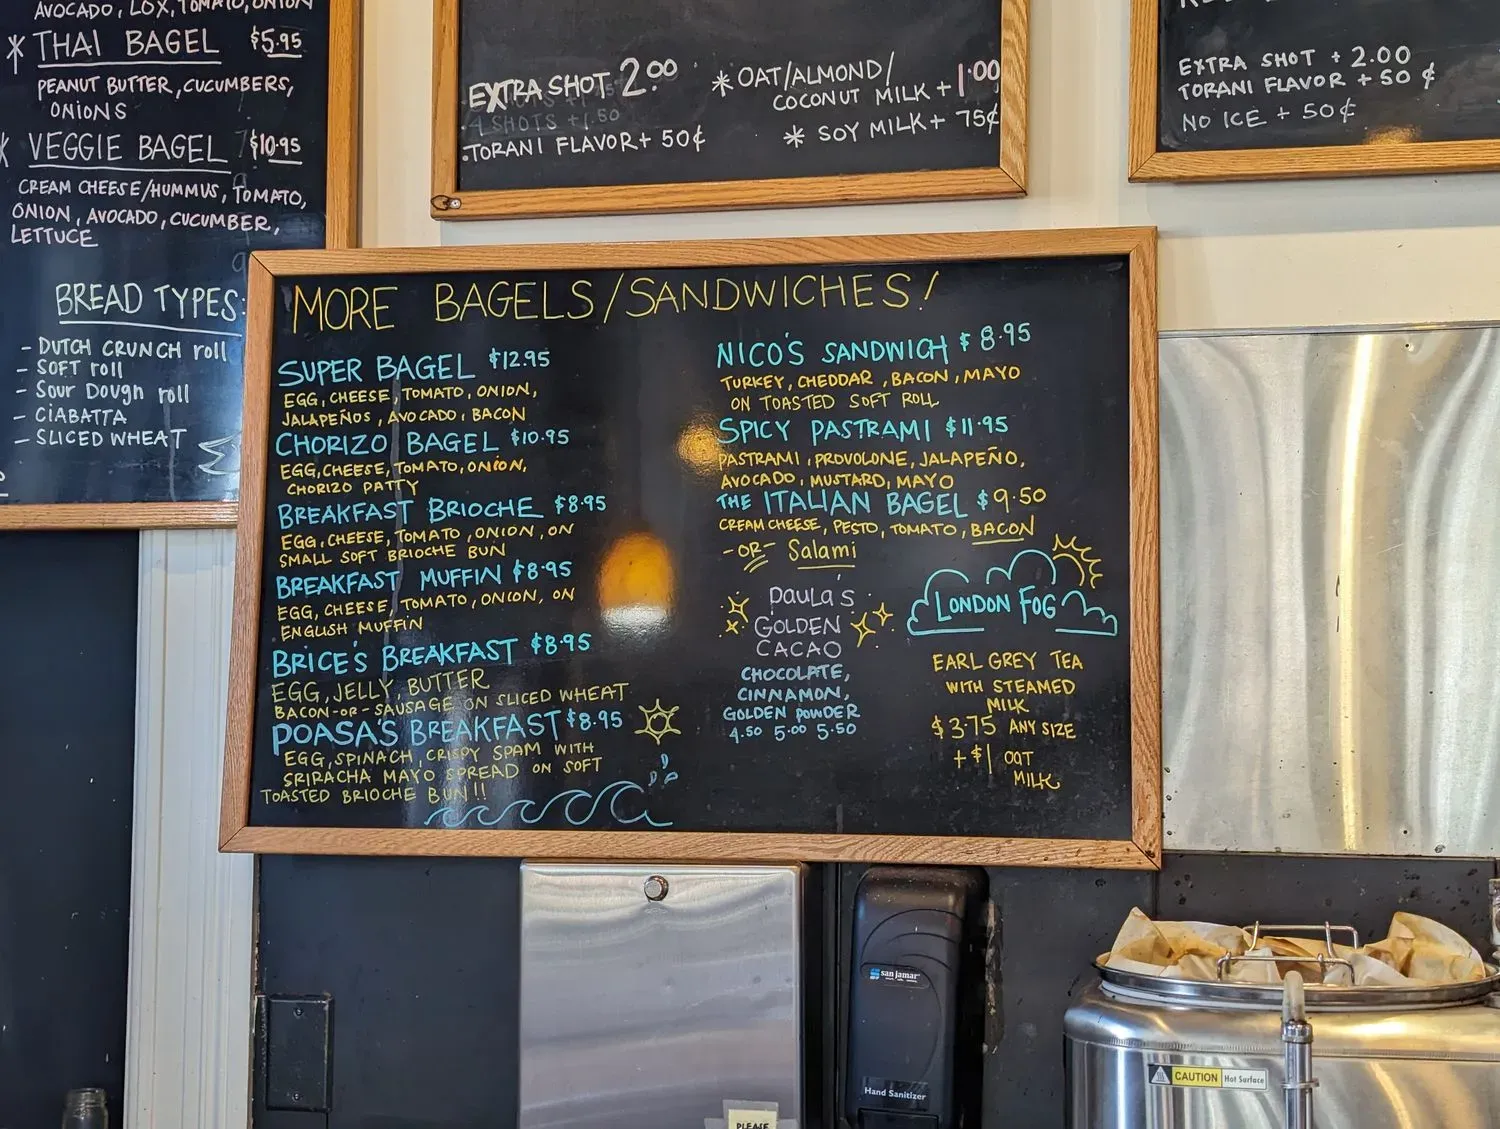 AVOCADO, LOX, TOMATO, ONION
* THAI BAGEL $5.95
PEANUT BUTTER, CUCUMBERS,
ONIONS
* VEGGIE BAGEL $10.95
CREAM CHEESE/HUMMUS, TOMATO,
ONION, AVOCADO, CUCUMBER,
LETTUCE
BREAD TYPES:
- DUTCH CRUNCH roll
- SOFT roll
- Sour Dough roll
- CIABATTA
- SLICED WHEAT
EXTRA SHOT 2.00
4 SHOTS +1.50
.TORANI FLAVOR + 50¢
* OAT/ALMOND/
COCONUT MILK + 1.00
* SOY MILK + 75¢
EXTRA SHOT + 2.00
TORANI FLAVOR + 50 ¢
NO ICE + 50¢
MORE BAGELS/SANDWICHES!
SUPER BAGEL $12.95
EGG, CHEESE, TOMATO, ONION,
JALAPEÑOS, AVOCADO, BACON
CHORIZO BAGEL $10.95
EGG, CHEESE, TOMATO, ONION,
CHORIZO PATTY
BREAKFAST BRIOCHE $8.95
EGG, CHEESE, TOMATO, ONION, ON
SMALL SOFT BRIOCHE BUN
BREAKFAST MUFFIN $8.95
EGG, CHEESE, TOMATO, ONION, ON
ENGLISH MUFFIN
BRICE'S BREAKFAST $8.95
EGG, JELLY, BUTTER
BACON-OR-SAUSAGE ON SLICED WHEAT
POASA'S BREAKFAST $8.95
EGG, SPINACH, CRISPY SPAM WITH
SRIRACHA MAYO SPREAD ON SOFT
TOASTED BRIOCHE BUN!!
NICO'S SANDWICH $8.95
TURKEY, CHEDDAR, BACON, MAYO
ON TOASTED SOFT ROLL
SPICY PASTRAMI $11.95
PASTRAMI, PROVOLONE, JALAPEÑO,
AVOCADO, MUSTARD, MAYO
THE ITALIAN BAGEL $9.50
CREAM CHEESE, PESTO, TOMATO, BACON
-OR- Salami
paula's
GOLDEN
CACAO
CHOCOLATE,
CINNAMON,
GOLDEN POWDER
4.50 5.00 5.50
LONDON FOG
EARL GREY TEA
WITH STEAMED
MILK
$3.75 ANY SIZE
+$1 OAT
MILK
san jamar
Hand Sanitizer
CAUTION Hot Surface
PLEASE